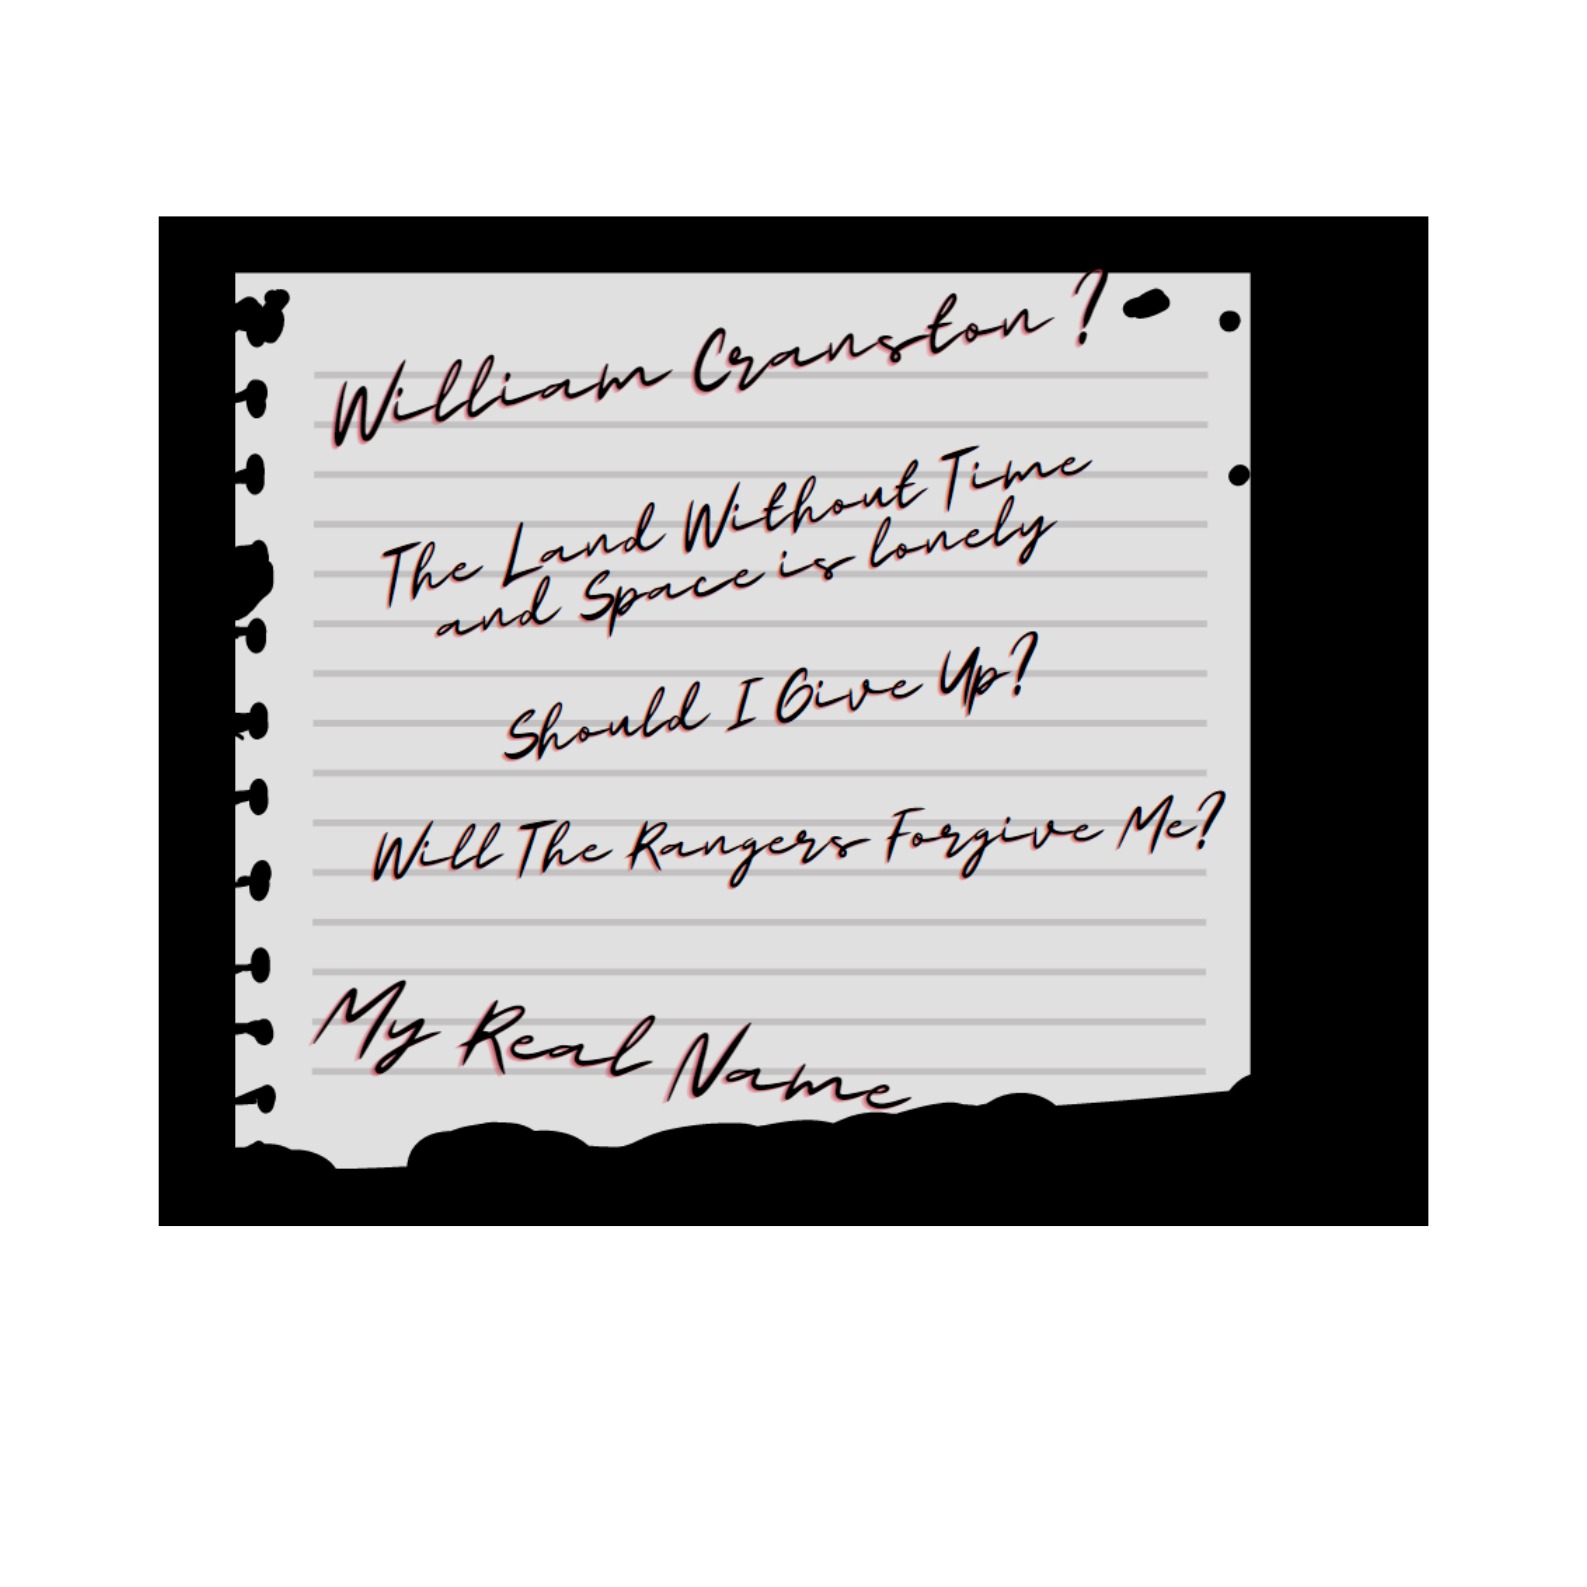 William Cranston?
The Land Without Time
and Space is lonely
Should I Give Up?
Will The Rangers Forgive Me?
My Real Name